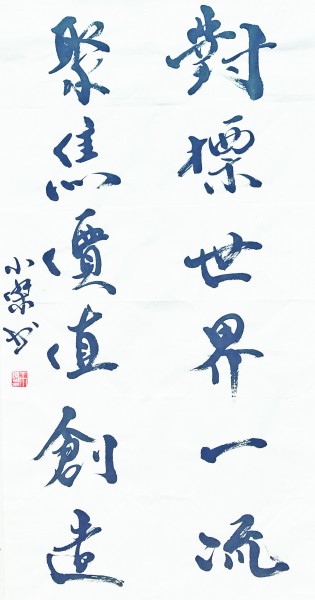 對標世界一流
聚焦價值創造
小榮书